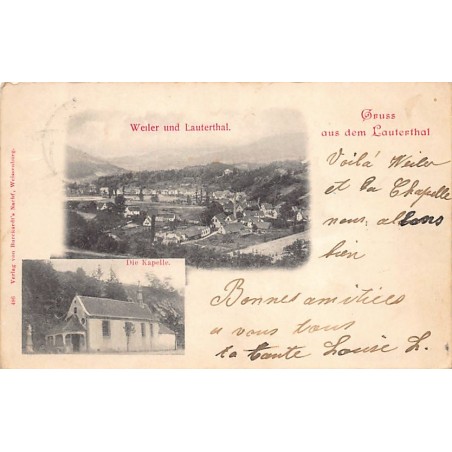 Weiler und Lauterthal.
Gruss
aus dem Lauterthal
Voilá Weiler
et la Chapelle
nous allons
bien
Die Kapelle.
Bonnes amitiées
a vous tous
ta tante Louise L.
416 Verlag von Burckardt's Nachf., Weissenburg.